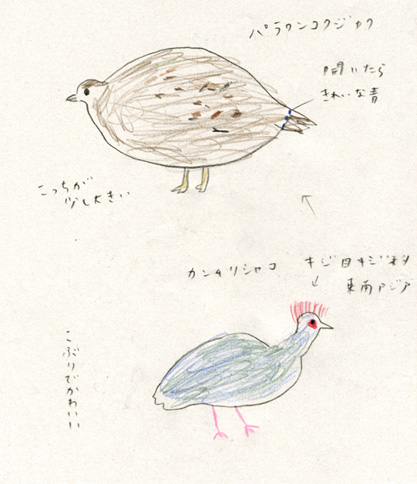 パラワンコクジャク
開いたら
きれいな青
こっちが
少し大きい
カンムリシャコ
キジ目キジ科
東南アジア
こぶりでかわいい